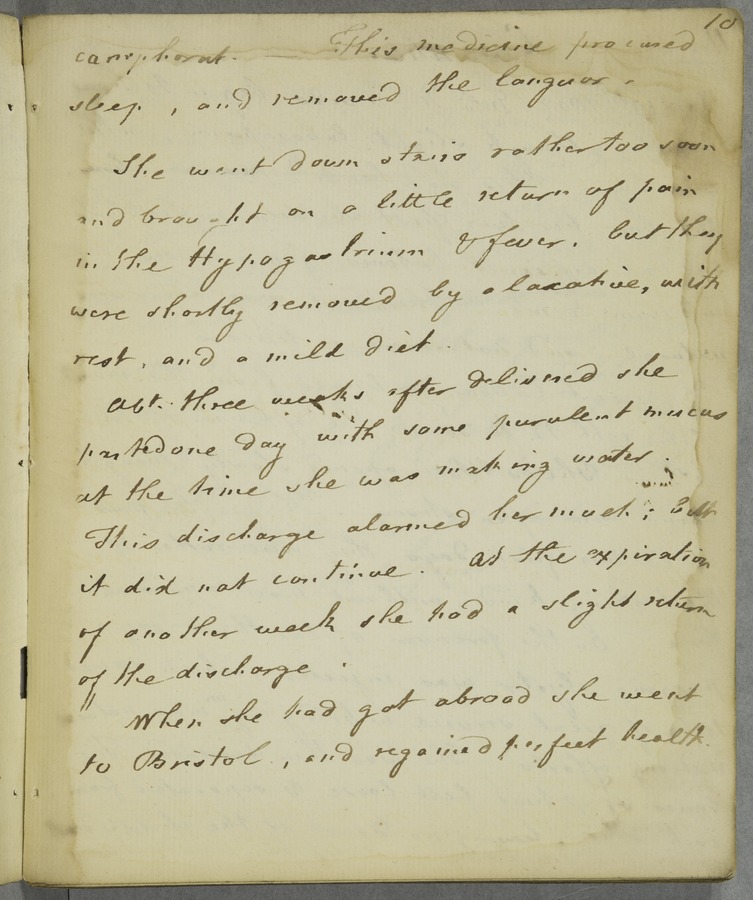 10
camphorat. — This medicine procured
sleep, and removed the languor.
She went down stairs rather too soon
and brought on a little return of pain
in the Hypogastrium & fever. but they
were shortly removed by a laxative, with
rest, and a mild diet.
Abt. three weeks after delivered she
parted one day with some purulent mucus
at the time she was making water.
This discharge alarmed her much; but
it did not continue. At the expiration
of another week she had a slight return
of the discharge.
When she had got abroad she went
to Bristol, and regained perfect health.